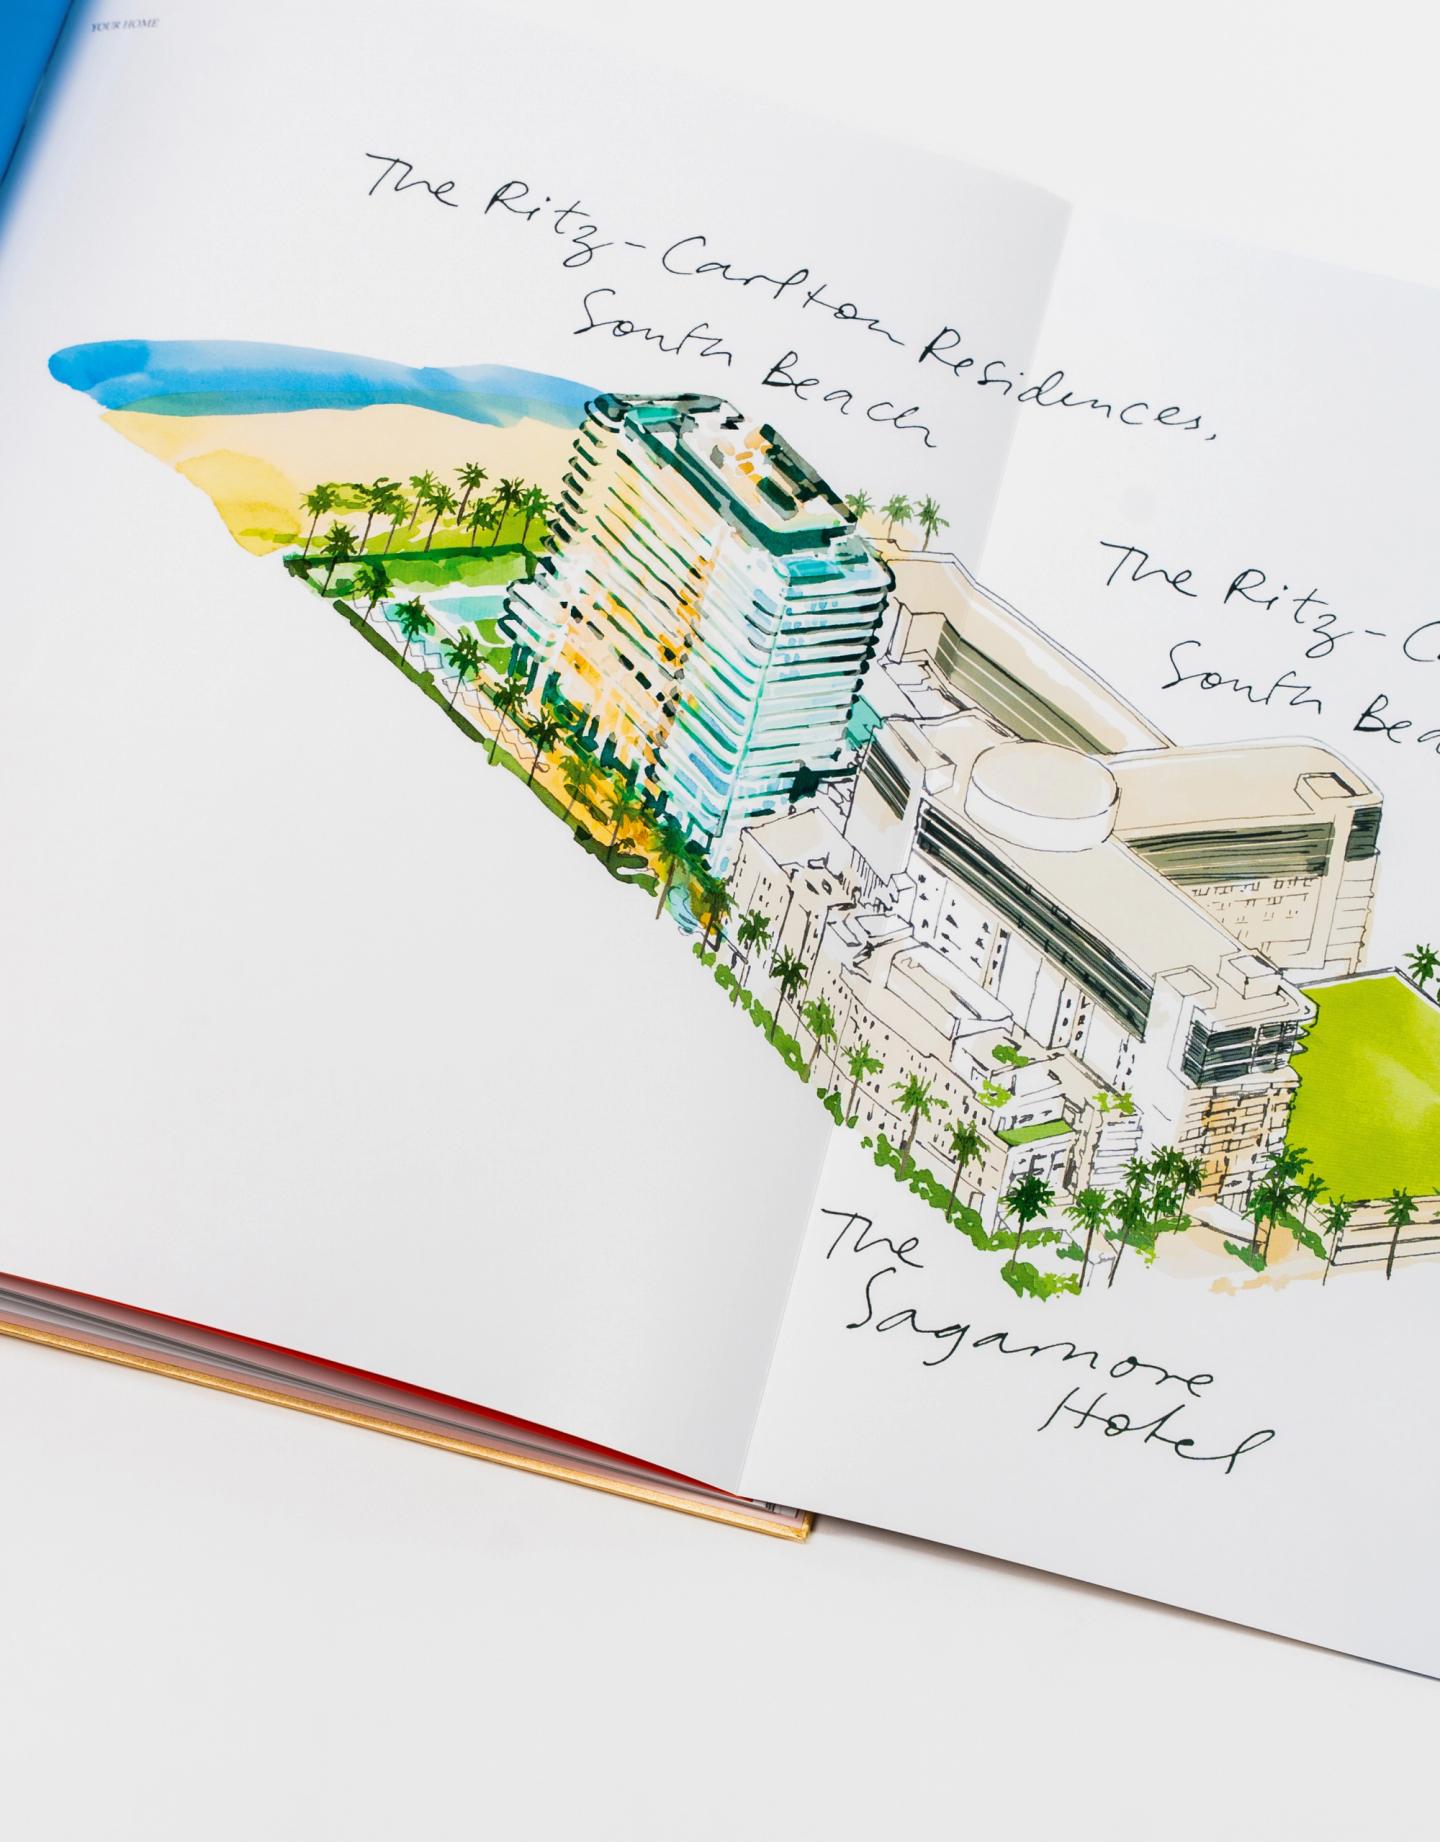 YOUR HOME
The Ritz-Carlton Residences,
South Beach
The Ritz-
South
The
Sagamore
Hotel